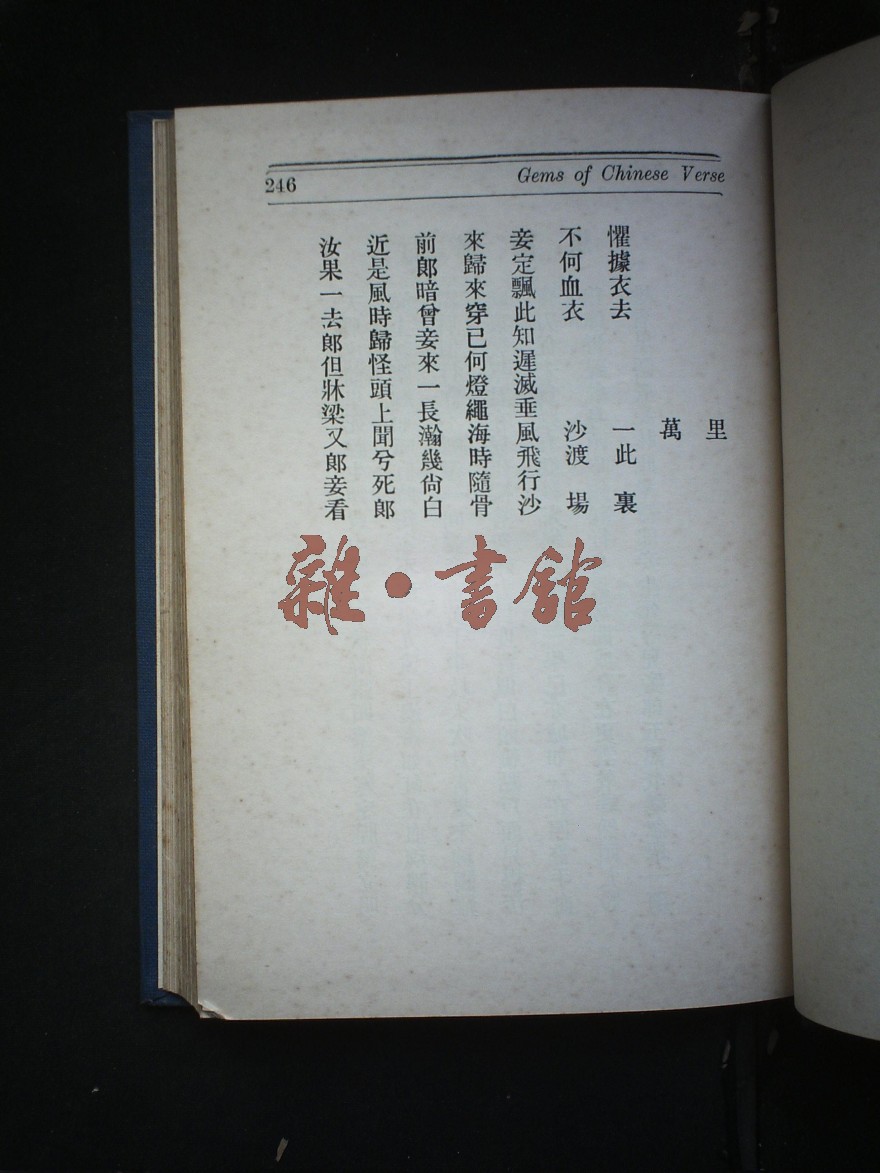 246
Gems of Chinese Verse
汝近前來妾不懼
果是郎歸定何據
一風暗來飄血衣
去時曾穿此衣去
郎歸妾已知
但怪來何遲
牀頭一燈滅
梁上長繩垂
又聞瀚海風沙一萬里
郎兮幾時飛渡此
妾死尙隨行
看郎白骨沙場裏
雜·書館